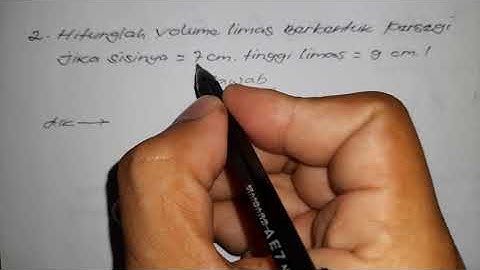 2. Hitunglah volume limas berbentuk persegi
Jika sisinya = 7 cm. tinggi limas = 9 cm!
Jawab
dik →
STANDARD AE7